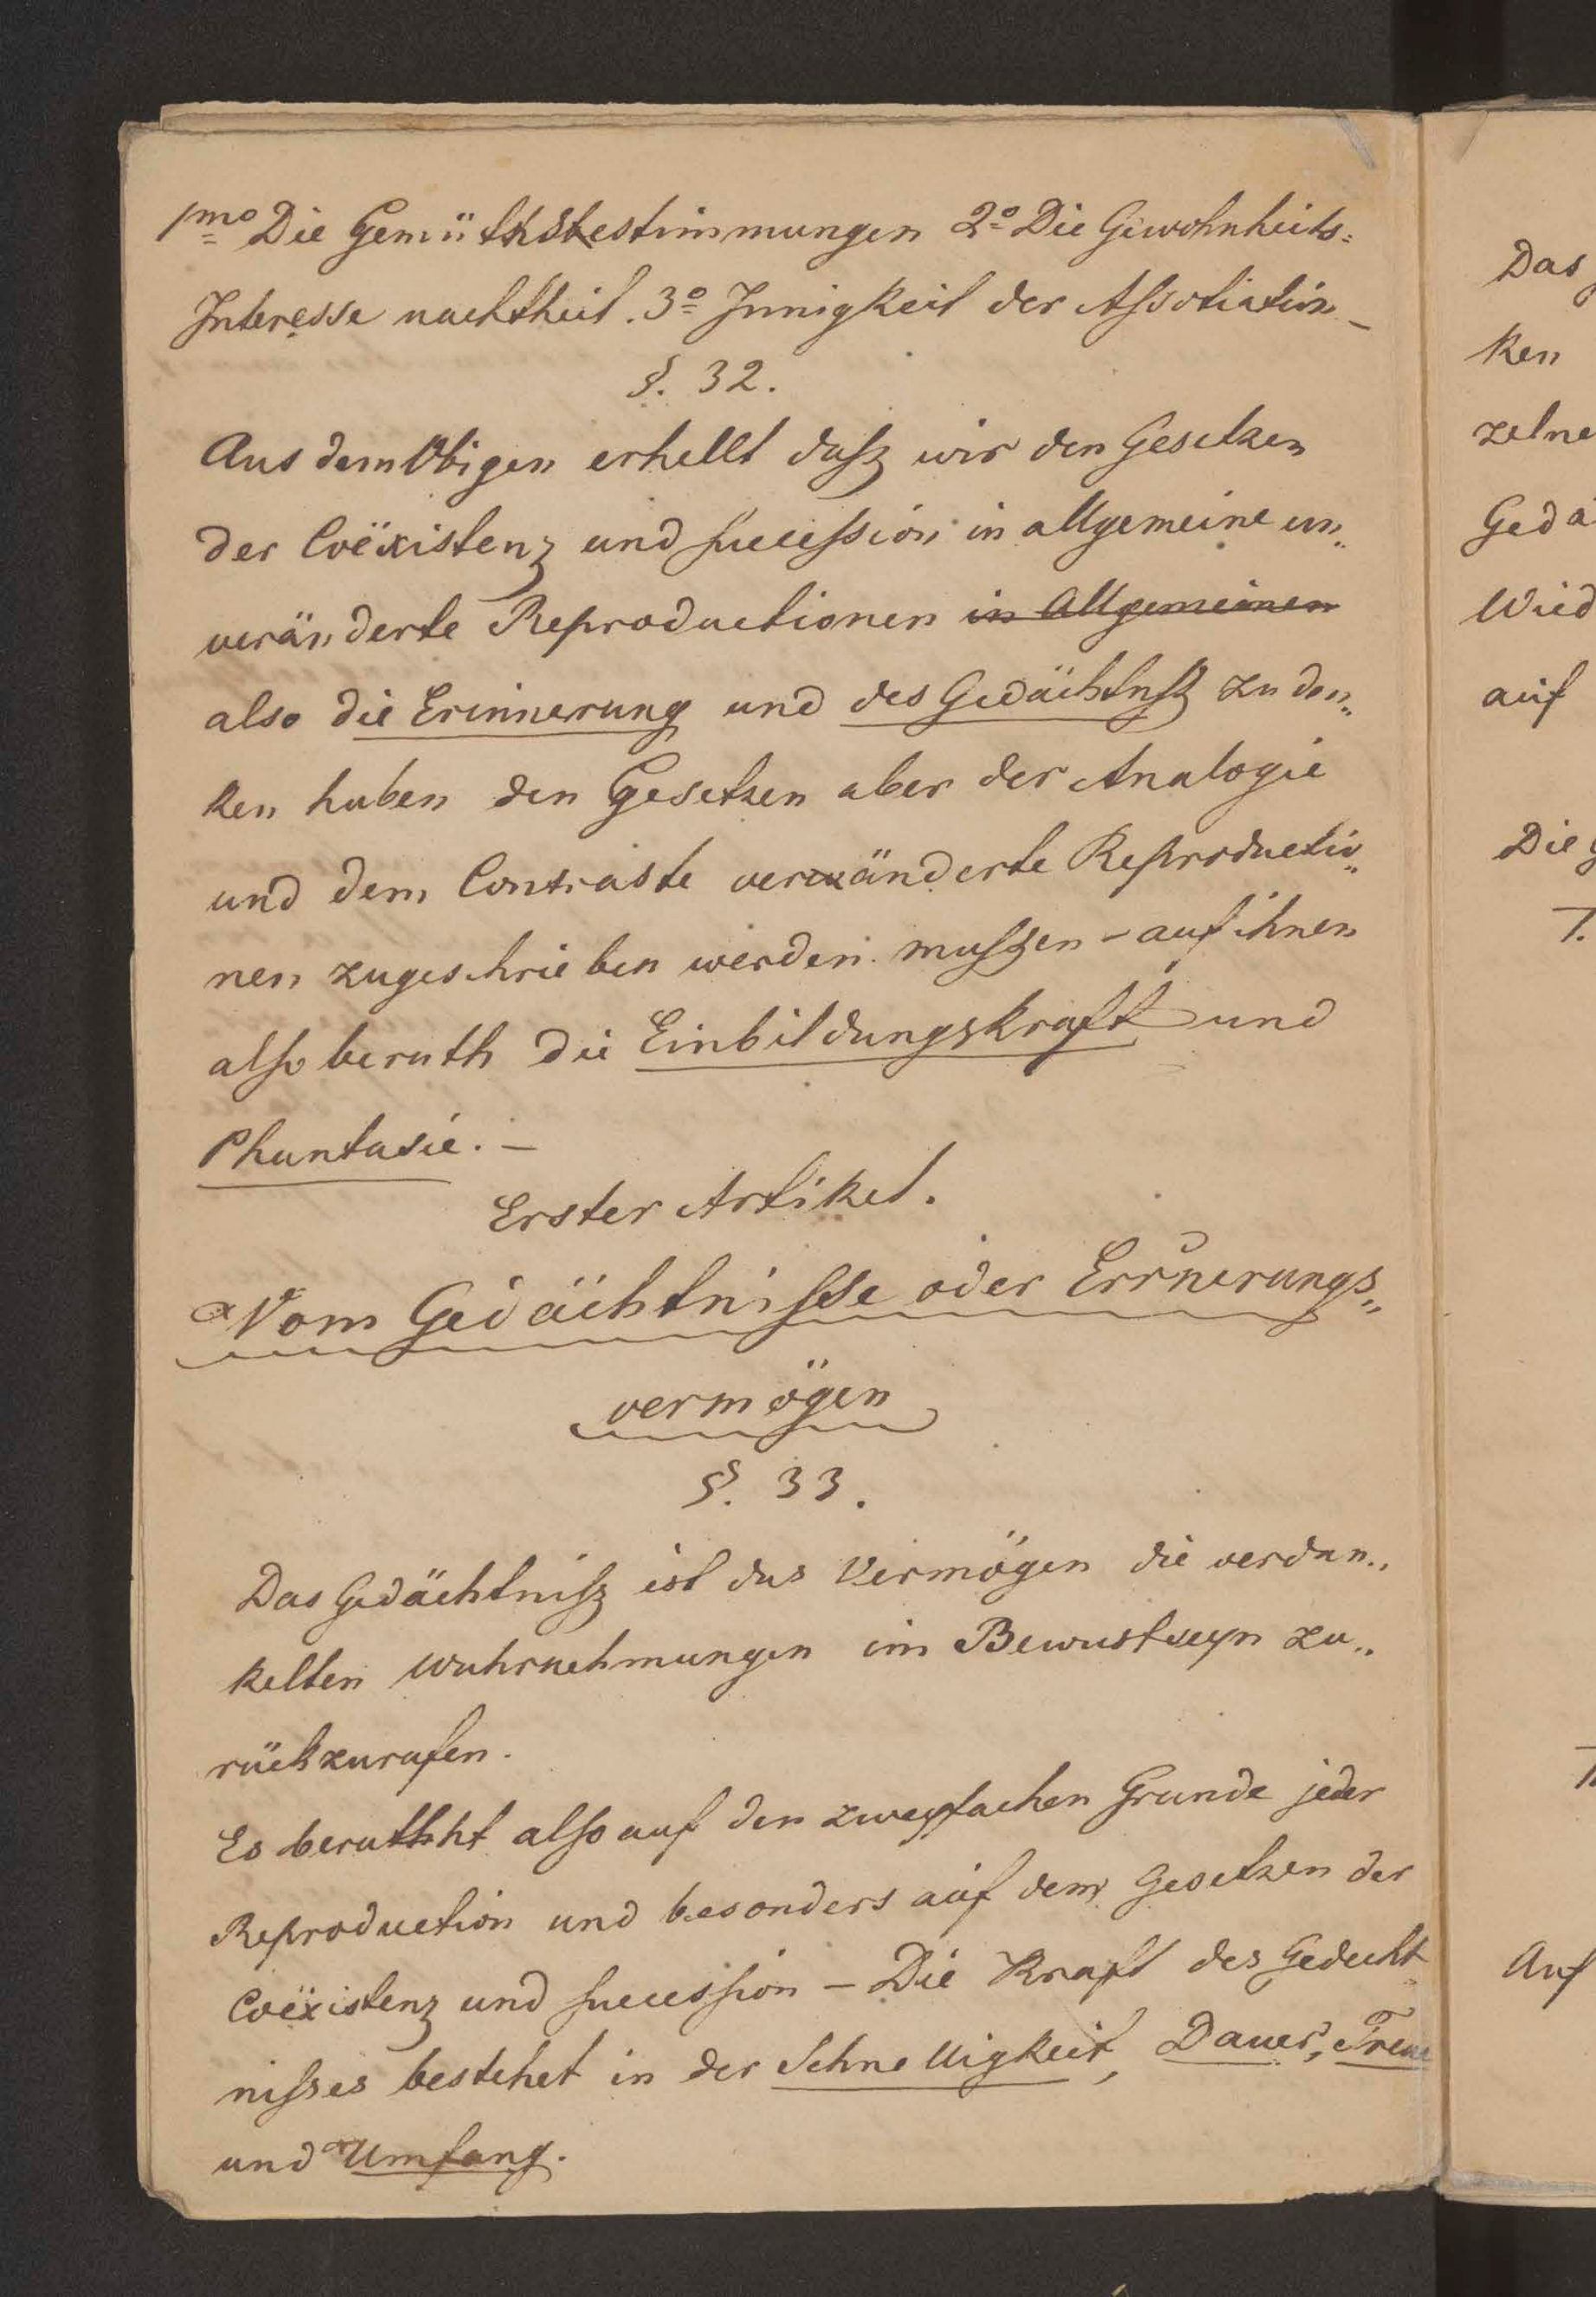 1mo Die Gemüthsbestimmungen 2o Die Gewohnheits=
Interesse nachtheil. 3o Innigkeit der Assotiation –
§. 32.
Aus dem Obigen erhellt dasz wir den Gesetzen
der Coëxistenz und Succession in allgemeine un„
veränderte Reproductionen in Allgemeinen
also die Erinnerung und des Gedächtnisz zu den„
ken haben den Gesetzen aber der Analogie
und dem Contraste veränderte Reproductio„
nen zugeschrieben werden muszen – auf ihnen
also beruth die Einbildungskraft und
Phantasie. –
Erster Artikel.
Vom Gedächtnisse oder Errinerungs„
vermögen
§. 33.
Das Gedächtnisz ist das Vermögen die verdun„
kelten Wahrnehmungen im Bewustseyn zu„
rückzurufen.
Es beruht also auf den zweyfachen Grunde jeder
Reproduction und besonders auf dem Gesetzen der
Coëxistenz und Succession – Die Kraft des Gedecht„
niszes bestehet in der Schnelligkeit, Dauer, Treue
und Umfang.
Das
ken
zelne
Gedä
Wied
auf
Die
Auf